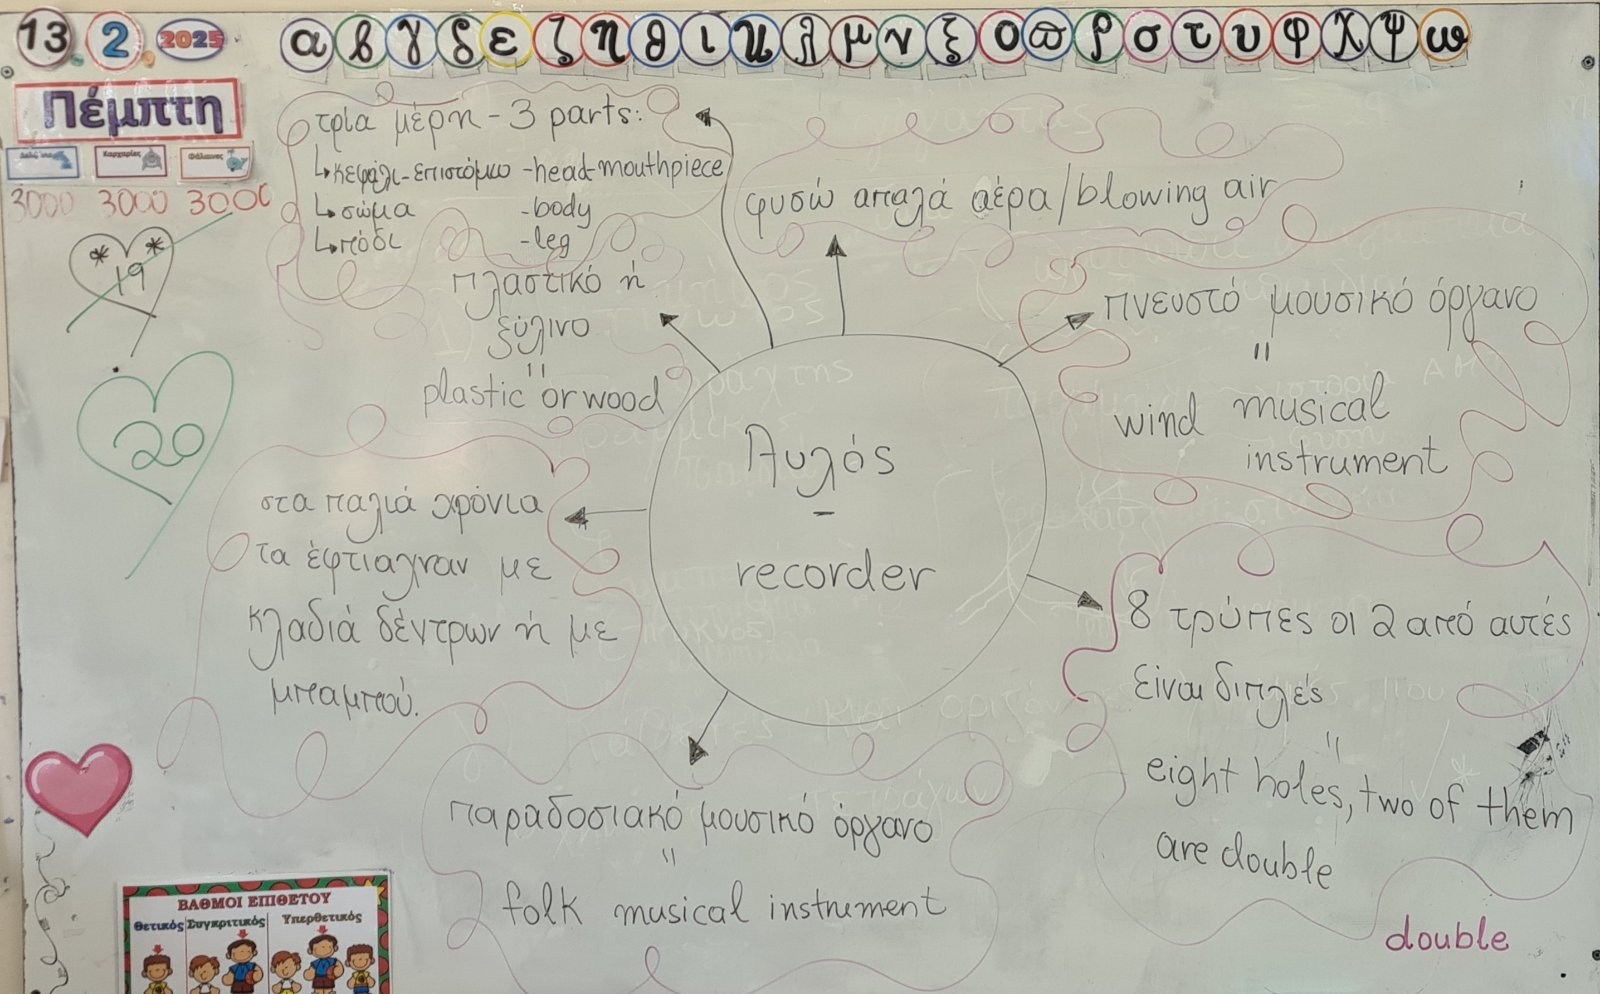 13. 2. 2025
α β γ δ ε ζ η θ ι κ λ μ ν ξ ο π ρ σ τ υ φ χ ψ ω
Πέμπτη
Καρχαρίες
Φάλαινες
3000 3000 3000
* 19 *
20
τρία μέρη - 3 parts:
↳ κεφάλι-επιστόμιο - head-mouthpiece
↳ σώμα - body
↳ πόδι - leg
φυσώ απαλά αέρα / blowing air
πλαστικό ή
ξύλινο
"
plastic or wood
πνευστό μουσικό όργανο
"
wind musical
instrument
Αυλός
-
recorder
στα παλιά χρόνια
τα έφτιαχναν με
κλαδιά δέντρων ή με
μπαμπού.
8 τρύπες οι 2 από αυτές
είναι διπλές
"
eight holes, two of them
are double
παραδοσιακό μουσικό όργανο
"
folk musical instrument
double
ΒΑΘΜΟΙ ΕΠΙΘΕΤΟΥ
Θετικός Συγκριτικός Υπερθετικός